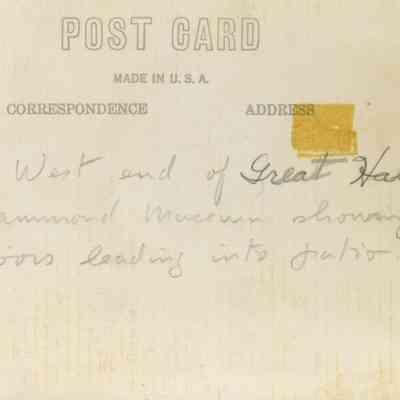 POST CARD
MADE IN U.S.A.
CORRESPONDENCE ADDRESS
West end of Great Ha
ammond Museum showing
oors leading into patio.